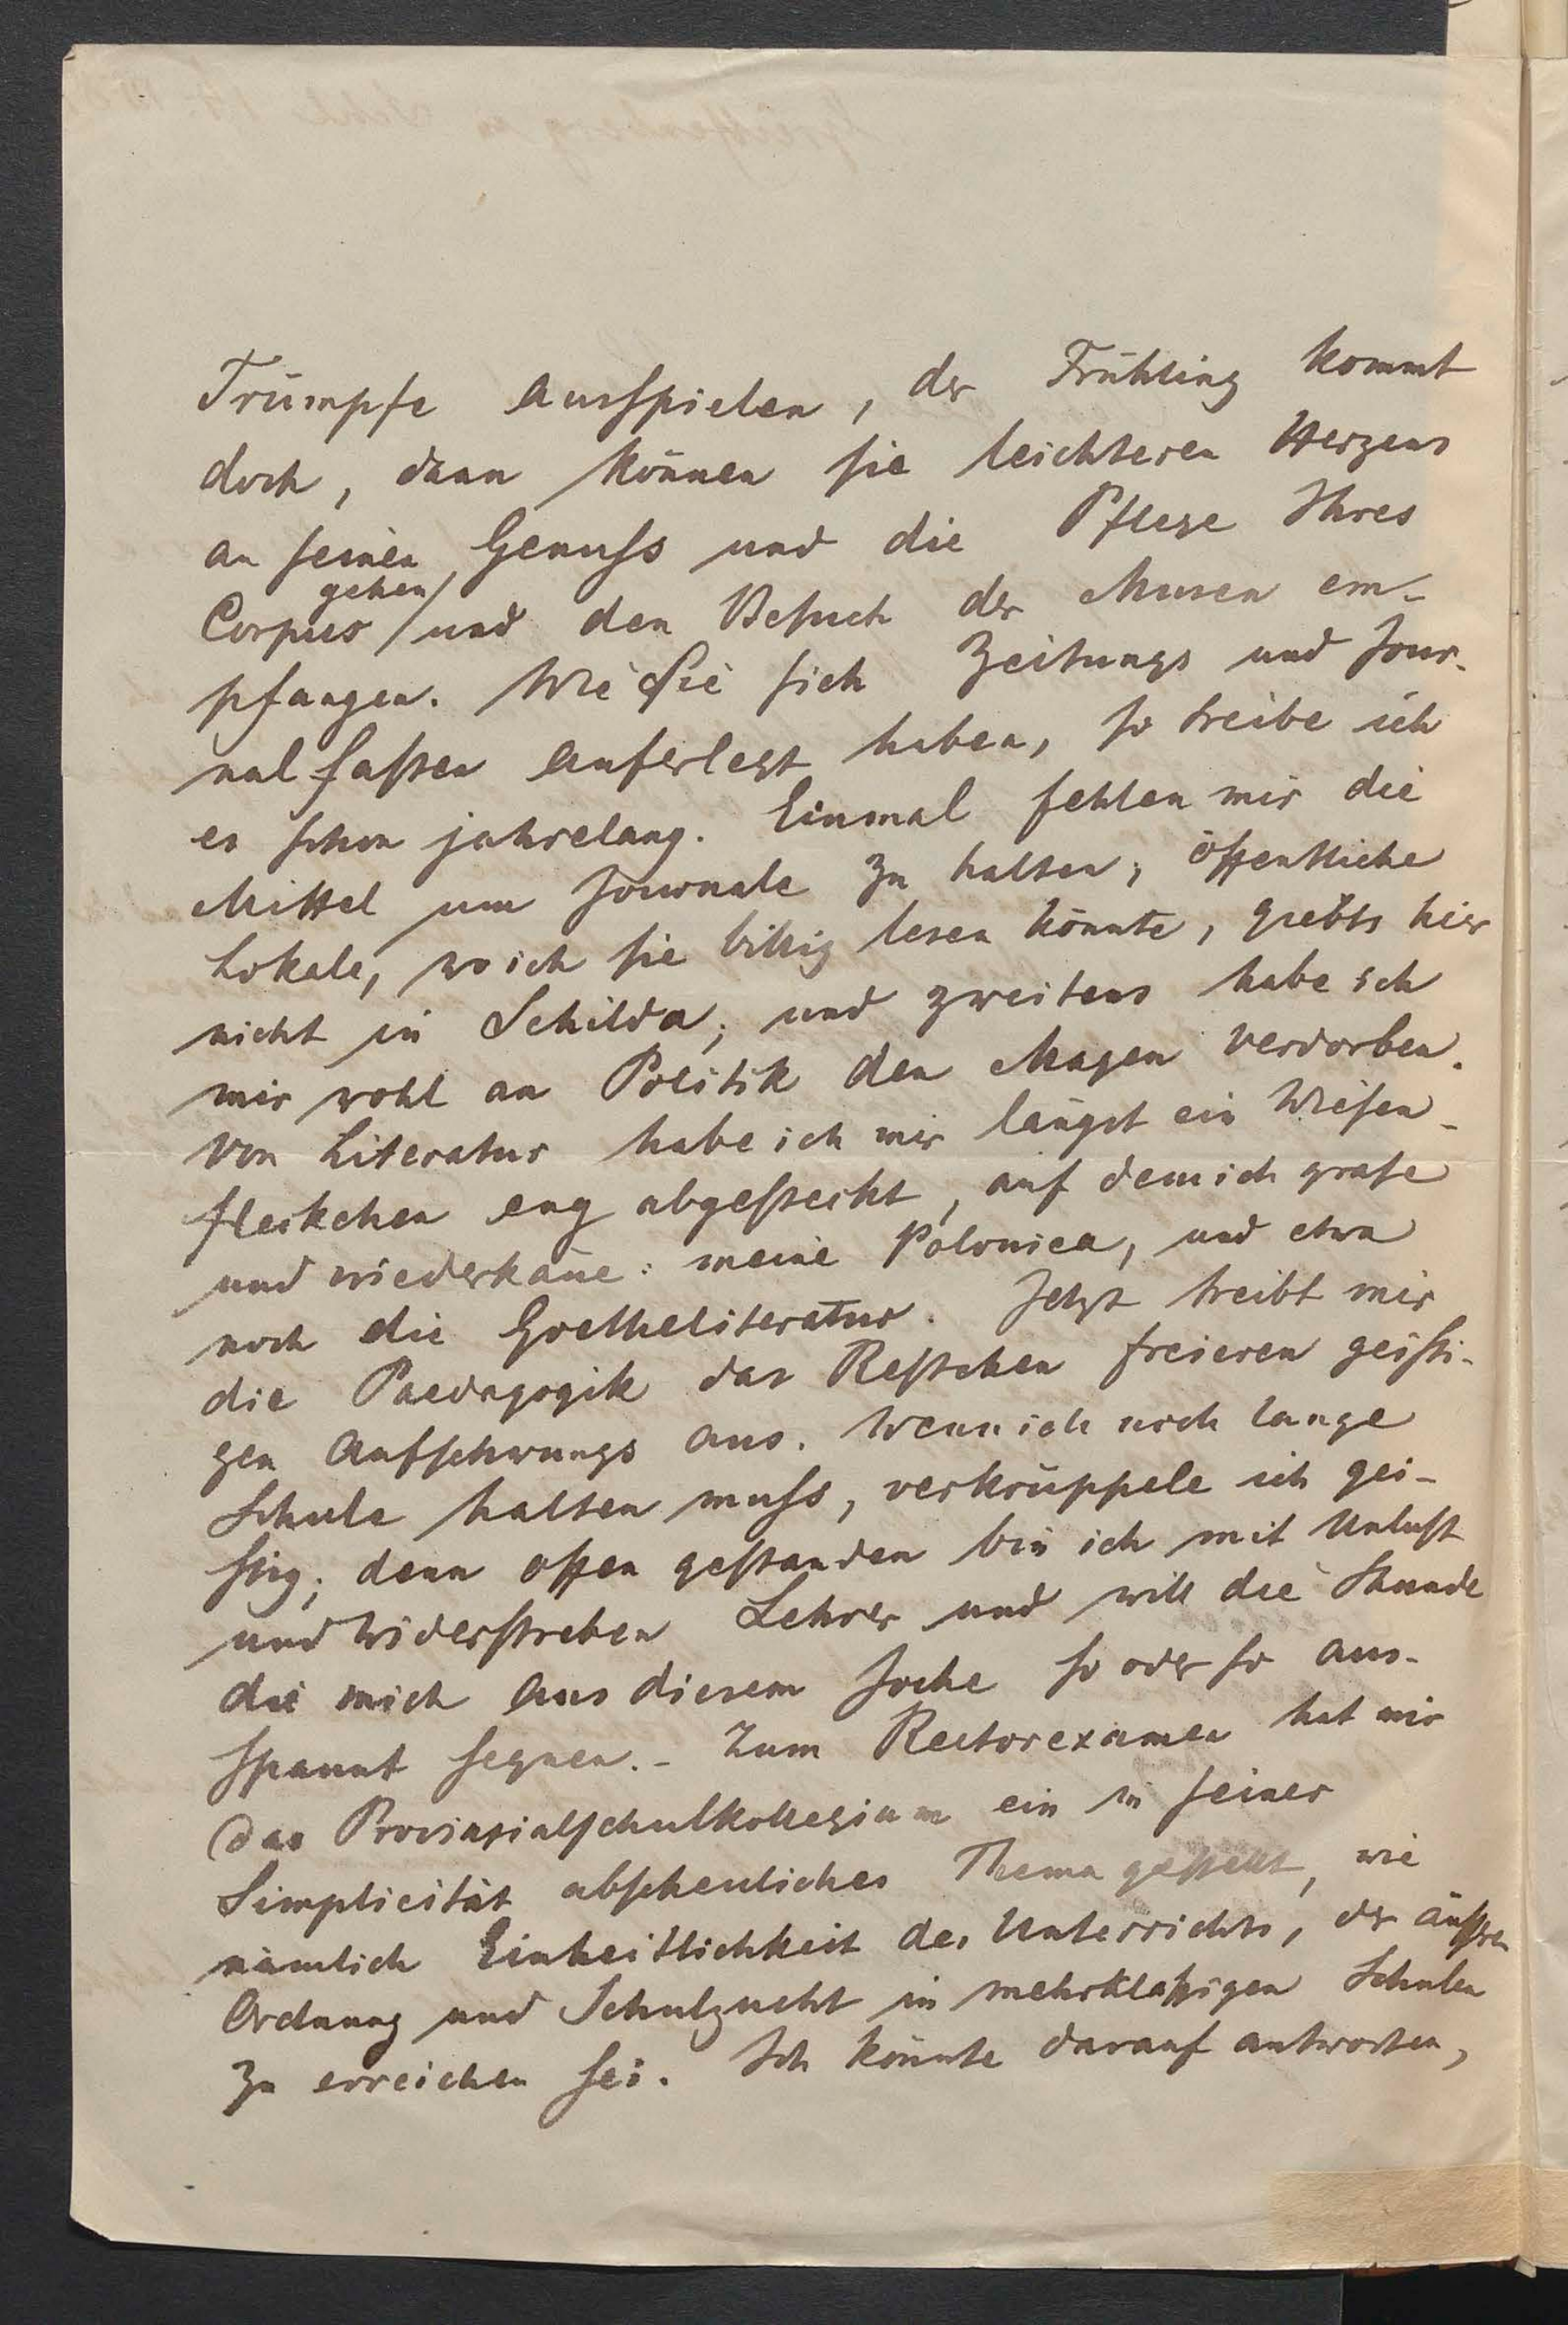 Trümpfe ausspielen, der Frühling kommt
doch, dann können sie leichteren Herzens
an seinen Genuss und die Pflege Ihres
gehen
Corpus / und den Besuch der Musen em-
pfangen. Wie Sie sich Zeitungs und Jour-
nal fasten auferlegt haben, so treibe ich
es schon jahrelang. Einmal fehlen mir die
Mittel um Journale zu halten; öffentliche
Lokale, wo ich sie billig lesen könnte, giebts hier
nicht in Schilda; und zweitens habe ich
mir wohl an Politik den Magen verdorben.
Von Literatur habe ich mir längst ein Wiesen-
fleckchen eng abgesteckt, auf dem ich grase
und wiederkäue: meine Polonica, und etwa
noch die Goetheliteratur. Jetzt treibt mir
die Paedagogik das Restchen freieren geisti-
gen Aufschwungs aus. Wenn ich noch lange
Schule halten muss, verkrüppele ich gei-
stig; denn offen gestanden bin ich mit Unlust
und Widerstreben Lehrer und will die Stunde
die mich aus diesem Joche so oder so aus-
spannt segnen. - Zum Rectorexamen hat mir
das Provinzialschulkollegium ein in seiner
Simplicität abscheuliches Thema gestellt, wie
nämlich Einheitlichkeit des Unterrichts, der äußren
Ordnung und Schulzucht in mehrklassigen Schulen
zu erreichen sei. Ich könnte darauf antworten,